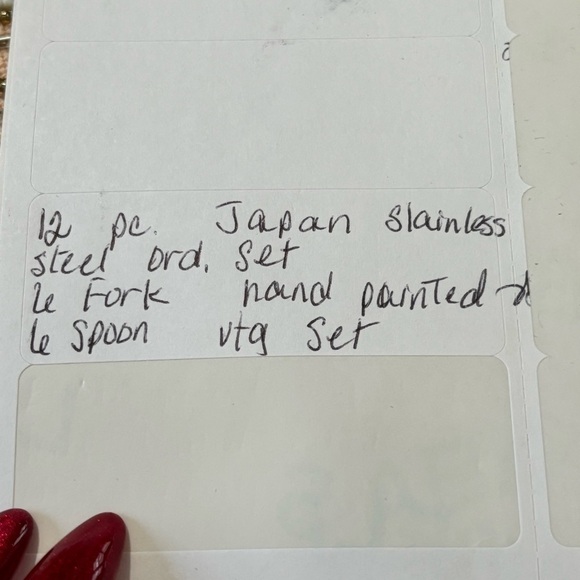 12 pc. Japan Stainless
steel ord. Set
6 Fork hand painted
6 Spoon vtg Set